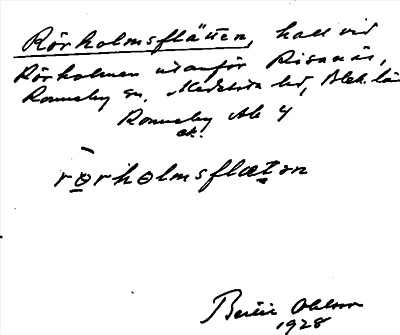 Rörholmsflätten, hall vid
Rörholmen utanför Risanäs,
Ronneby sn. Medelsta hd, Blek. län
Ronneby Ab 4
ek.
rörholmsflætən
Bertil Ohlsson
1928